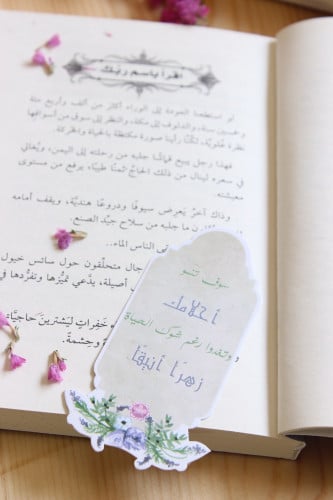 اقرأ باسم ربك
لو استطعنا العودة إلى الوراء أكثر من ألف وأربع مئة
وخمسين سنة، والدلوف إلى مكة، والنظر إلى سوق من أسواقها
نظرة علوية، لكنا رأينا صورة مكتظة بالحياة والحركة.
فهذا رجل يبيع قماشًا جلبه من رحلته إلى اليمن، ويُغالي
في سعره لينال من ذلك الحاج ثمنًا طيبًا، يرفع من مستوى
معيشته.
وذاك آخر يعرض سيوفًا ودروعًا هندية، ويقف أمامه
ن ما جلبه من سلاح جيد الصنع.
ى الناس الماء..
جال متحلقون حول سائس خيول
أصيلة، يدّعي تميُّزها وتفرُّدها في
خَفِرات ليشترين حاجياته
ة وحشمة.
سوف تنمو
أحلامك
وتغدوا رغم شوك الحياة
زهراً أنيقاً